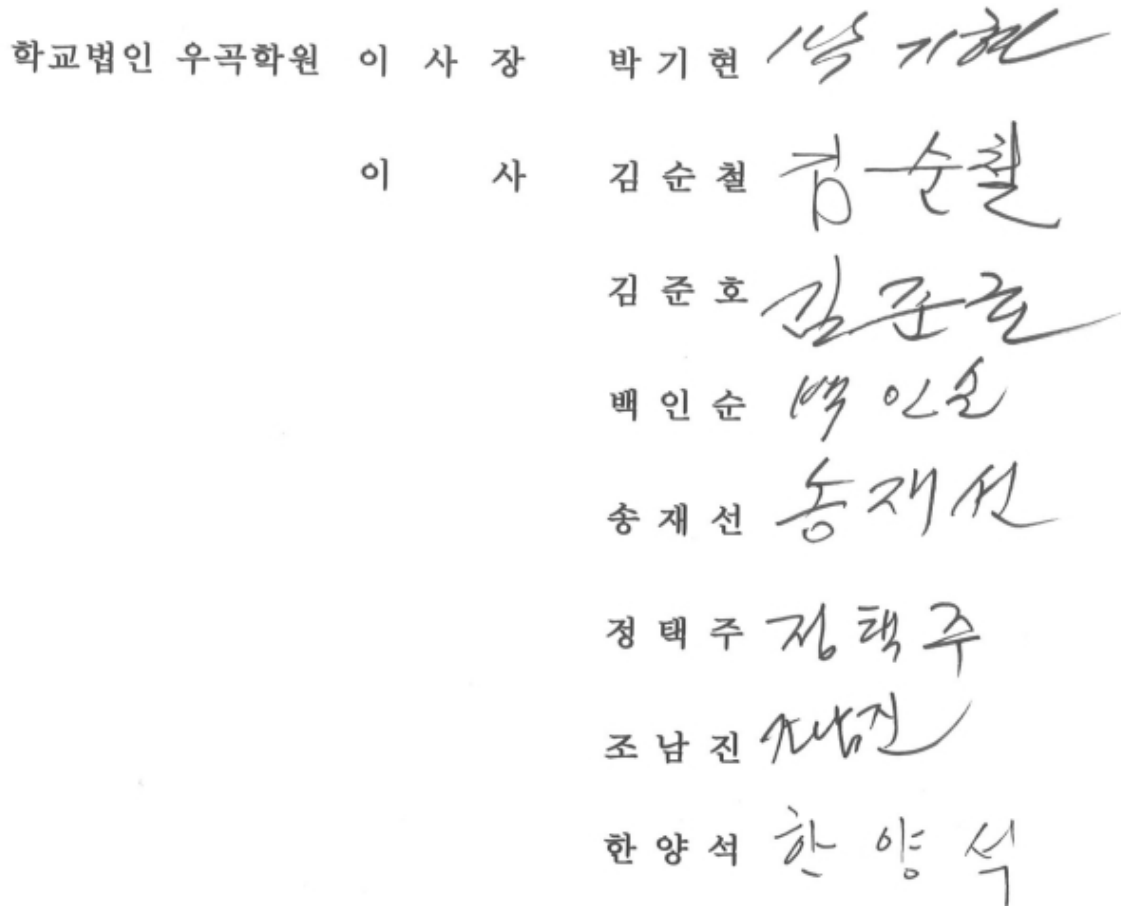 학교법인 우곡학원 이 사 장 박 기 현 박 기 현
이 사 김 순 철 김 순 철
김 준 호 김 준 호
백 인 순 백 인 순
송 재 선 송 재 선
정 택 주 정 택 주
조 남 진 조 남 진
한 양 석 한 양 석